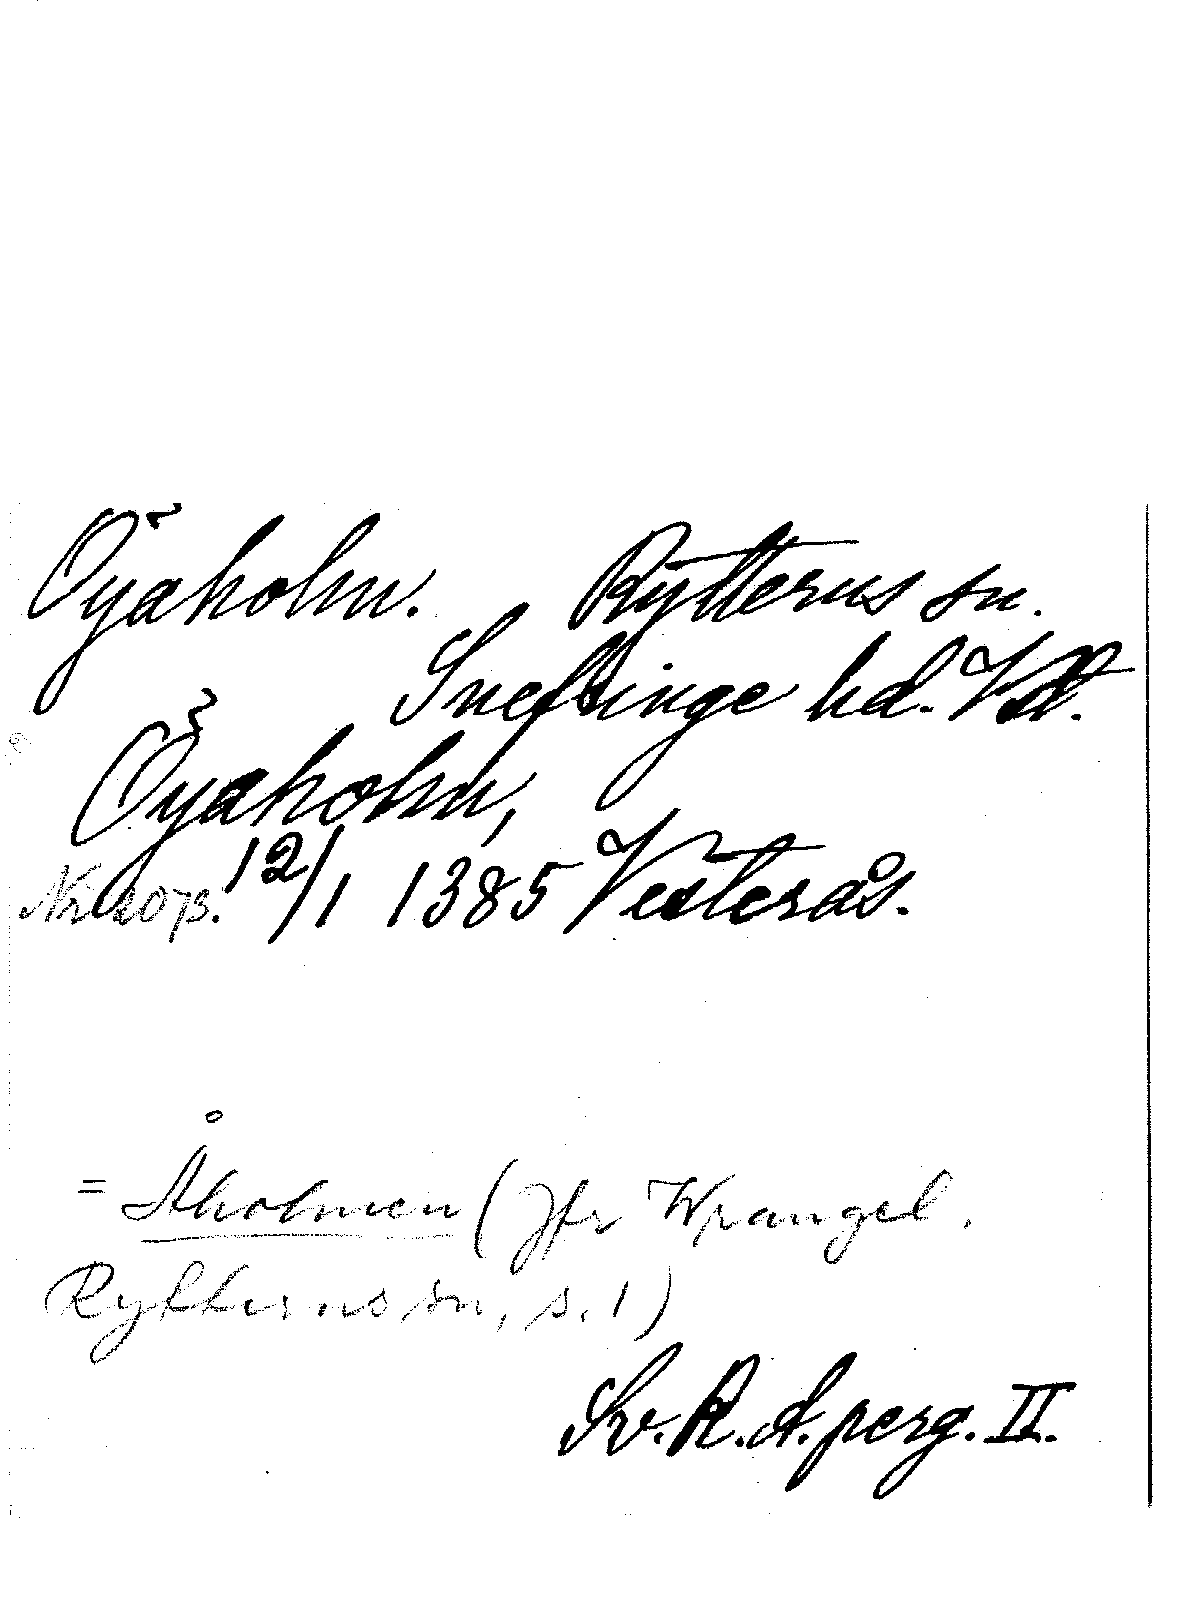 Öyaholm. Rytterns sn.
Snefringe hd. Vstl.
Öyaholm,
Nr 2073. 12/1 1385 Vesterås.
= Åholmen (Jfr Wrangel,
Rytterns sn, s. 1)
Sv. R. A. perg. II.